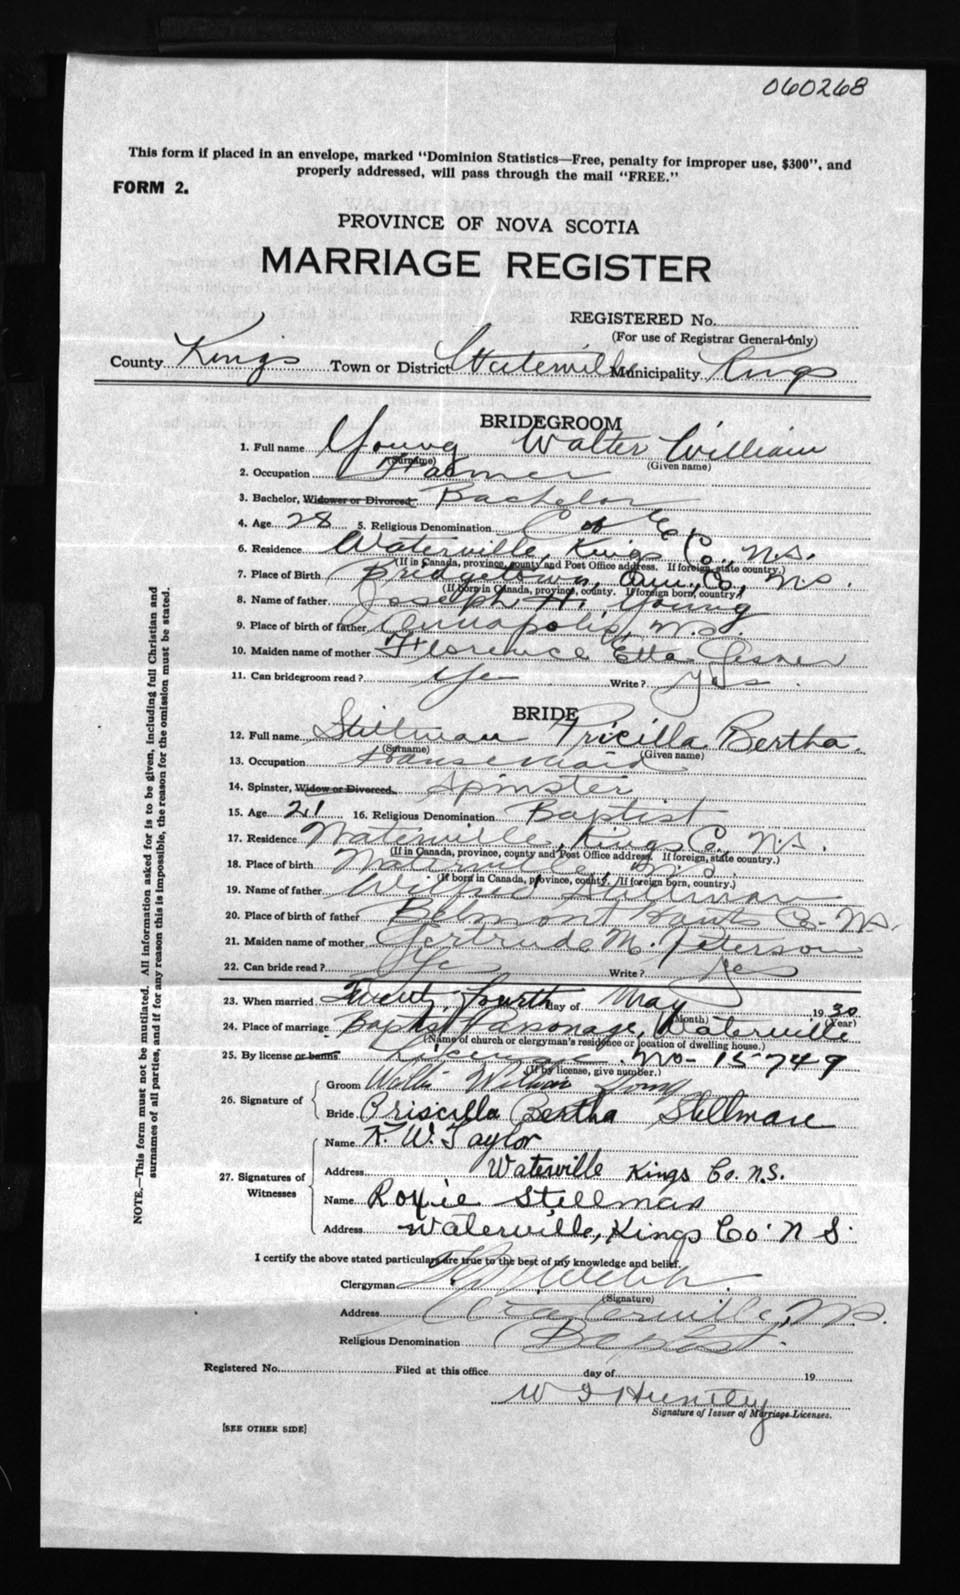 060268
This form if placed in an envelope, marked "Dominion Statistics—Free, penalty for improper use, $300", and
properly addressed, will pass through the mail "FREE."
FORM 2.
PROVINCE OF NOVA SCOTIA
MARRIAGE REGISTER
REGISTERED No.
(For use of Registrar General only)
County Kings Town or District Waterville Municipality Kings
BRIDEGROOM
1. Full name Young Walter William
(Surname) (Given name)
2. Occupation Farmer
3. Bachelor, Widower or Divorced Bachelor
4. Age 28 5. Religious Denomination C of E
6. Residence Waterville, Kings Co., N.S.
(If in Canada, province, county and Post Office address. If foreign, state country.)
7. Place of Birth Bridgetown, Ann., Co., N.S.
(If born in Canada, province, county. If foreign born, country.)
8. Name of father Joseph H. Young
9. Place of birth of father Annapolis, N.S.
10. Maiden name of mother Florence Etta
11. Can bridegroom read? Yes Write? Yes
BRIDE
12. Full name Stillman Pricilla Bertha
(Surname) (Given name)
13. Occupation Housemaid
14. Spinster, Widow or Divorced. Spinster
15. Age 21 16. Religious Denomination Baptist
17. Residence Waterville, Kings Co., N.S.
(If in Canada, province, county and Post Office address. If foreign, state country.)
18. Place of birth Waterville, N.S.
(If born in Canada, province, county. If foreign born, country.)
19. Name of father Wilfred Stillman
20. Place of birth of father Belmont Hants Co. N.S.
21. Maiden name of mother Gertrude M. Peterson
22. Can bride read? Yes Write? Yes
23. When married Twenty fourth day of May 1930
(Month) (Year)
24. Place of marriage Baptist Parsonage, Waterville
(Name of church or clergyman's residence or location of dwelling house.)
25. By license or banns License No- 15749
(If by license, give number.)
26. Signature of
Groom William Young
Bride Priscilla Bertha Stillman
27. Signatures of Witnesses
Name K. W. Taylor
Address Waterville Kings Co. N.S.
Name Roxie Stillman
Address Waterville, Kings Co. N S.
I certify the above stated particulars are true to the best of my knowledge and belief.
Clergyman
(Signature)
Address Waterville, N.S.
Religious Denomination Baptist.
Registered No. Filed at this office day of 19
W Huntley
Signature of Issuer of Marriage Licenses.
[SEE OTHER SIDE]
NOTE.—This form must not be mutilated. All information asked for is to be given, including full Christian and
surnames of all parties, and if for any reason this is impossible, the reason for the omission must be stated.